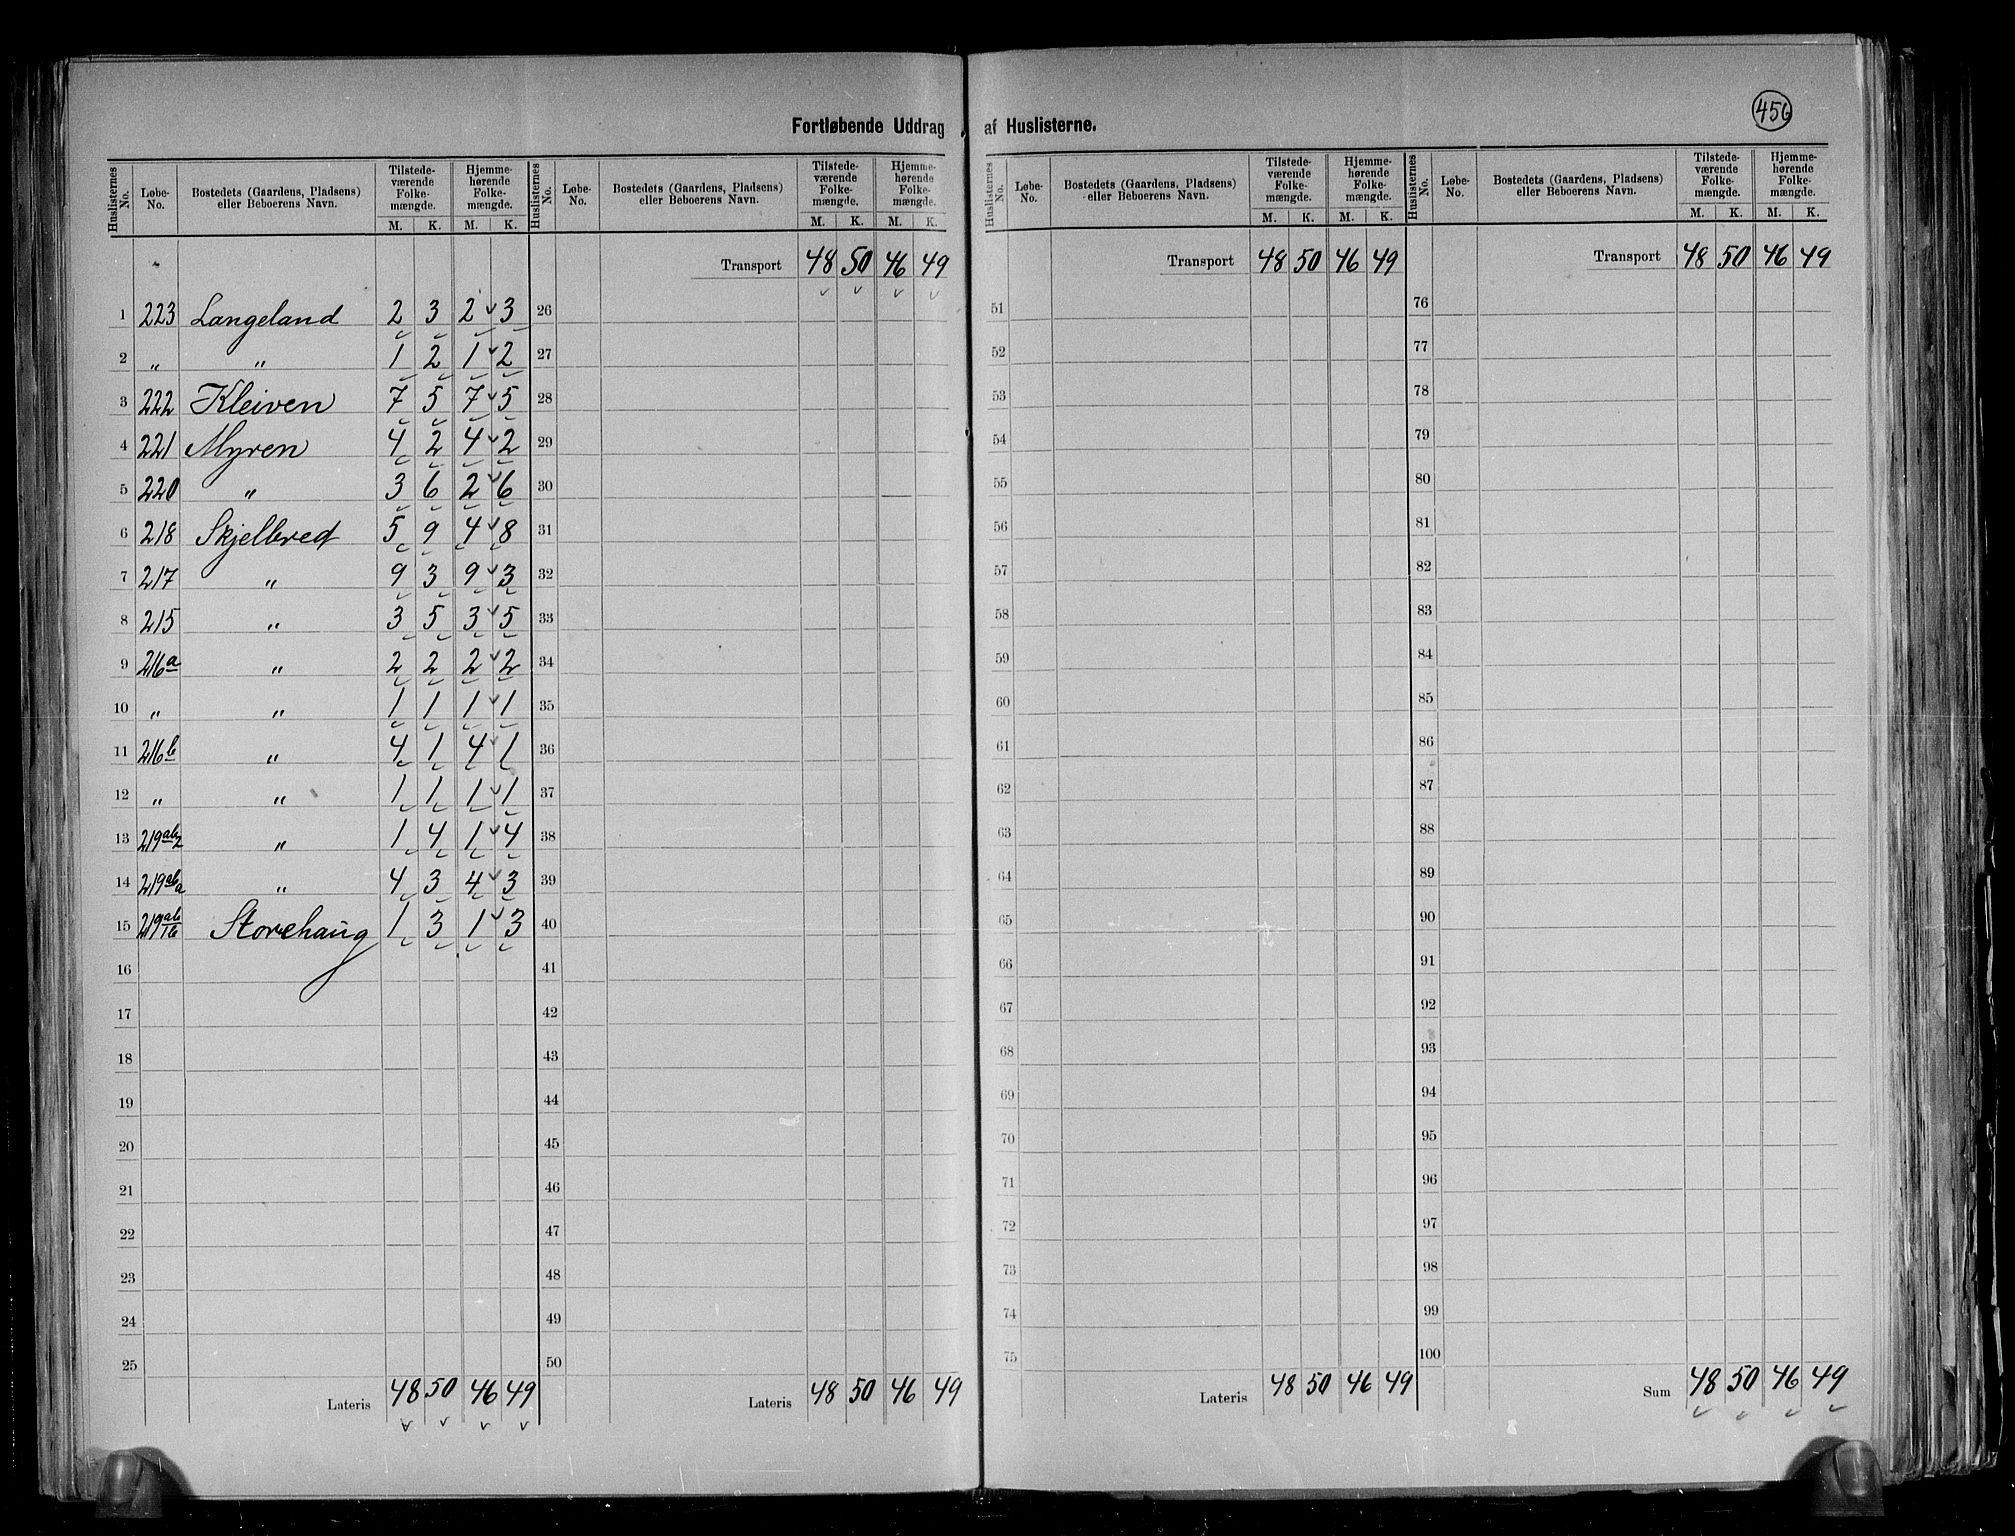 456
Fortløbende Uddrag af Huslisterne.
Huslisternes No. Løbe-No. Bostedets (Gaardens, Pladsens) eller Beboerens Navn. Tilstede-værende Folke-mængde. M. K. Hjemme-hørende Folke-mængde. M. K.
Huslisternes No. Løbe-No. Bostedets (Gaardens, Pladsens) eller Beboerens Navn. Tilstede-værende Folke-mængde. M. K. Hjemme-hørende Folke-mængde. M. K.
Huslisternes No. Løbe-No. Bostedets (Gaardens, Pladsens) eller Beboerens Navn. Tilstede-værende Folke-mængde. M. K. Hjemme-hørende Folke-mængde. M. K.
Huslisternes No. Løbe-No. Bostedets (Gaardens, Pladsens) eller Beboerens Navn. Tilstede-værende Folke-mængde. M. K. Hjemme-hørende Folke-mængde. M. K.
Transport 48 50 46 49 Transport 48 50 46 49 Transport 48 50 46 49
1 223 Langeland 2 3 2 3 26 51 76
2 " " 1 2 1 2 27 52 77
3 222 Kleiven 7 5 7 5 28 53 78
4 221 Myren 4 2 4 2 29 54 79
5 220 " 3 6 2 6 30 55 80
6 218 Skjelbred 5 9 4 8 31 56 81
7 217 " 9 3 9 3 32 57 82
8 215 " 3 5 3 5 33 58 83
9 216a " 2 2 2 2 34 59 84
10 " " 1 1 1 1 35 60 85
11 216b " 4 1 4 1 36 61 86
12 " " 1 1 1 1 37 62 87
13 219ab2 " 1 4 1 4 38 63 88
14 219aba " 4 3 4 3 39 64 89
15 219ab/1b Storehaug 1 3 1 3 40 65 90
16 41 66 91
17 42 67 92
18 43 68 93
19 44 69 94
20 45 70 95
21 46 71 96
22 47 72 97
23 48 73 98
24 49 74 99
25 50 75 100
Lateris 48 50 46 49 Lateris 48 50 46 49 Lateris 48 50 46 49 Sum 48 50 46 49